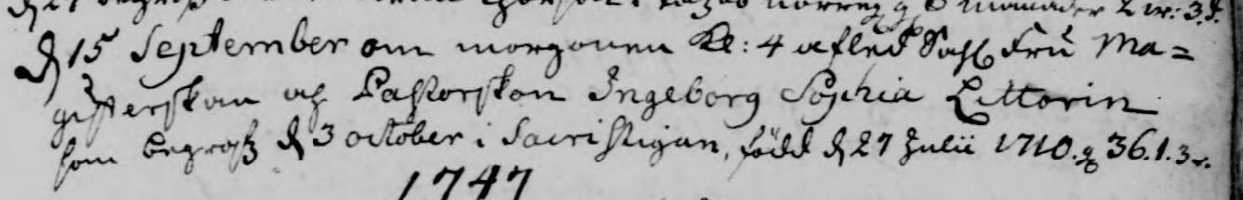 d 27 begrofs norreg g 6 månader 2 w: 3 d.
d 15 September om morgonen Kl: 4 afled Sahl Fru Ma=
gisterskan och Pastorskan Ingeborg Sophia Littorin
som begrofs d 3 october i Sacristigan, född d 27 Julii 1710. g 36. 1. 3 w.
1747